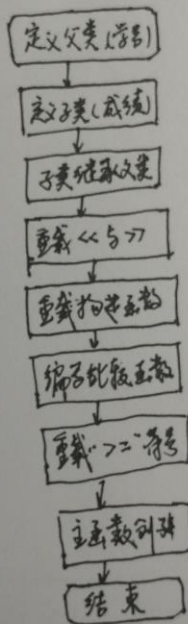 定义父类(学号)
定义子类(成绩)
子类继承父类
重载<<与>>
重载构造函数
编写比较函数
重载">="符号
主函数列表
结束